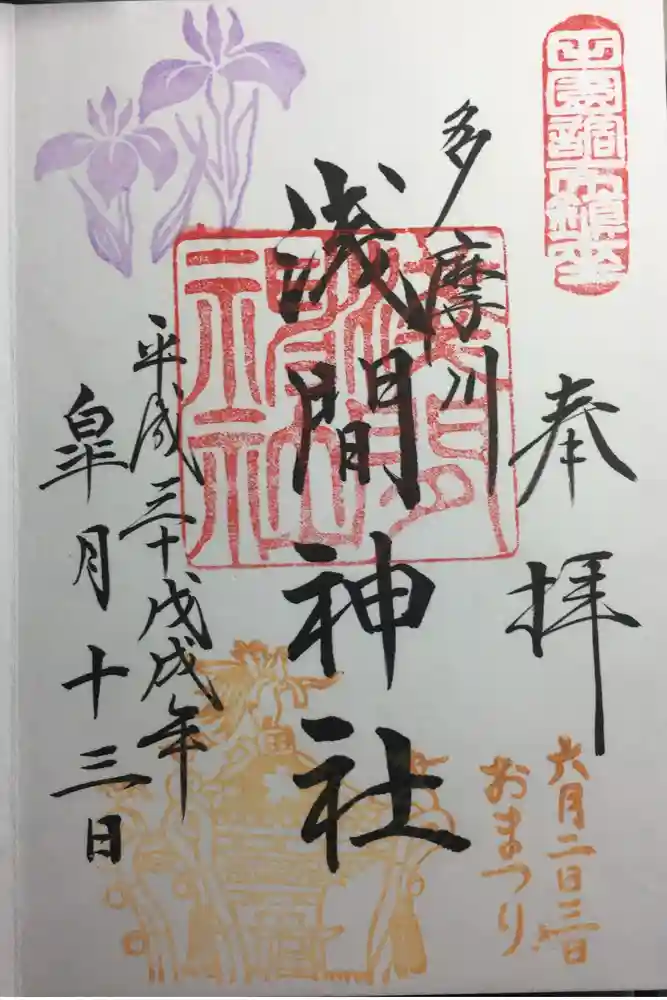 田園調布鎮座
奉拝
多摩川
浅間神社
平成三十戊戌年
皐月十三日
六月二日三日
おまつり